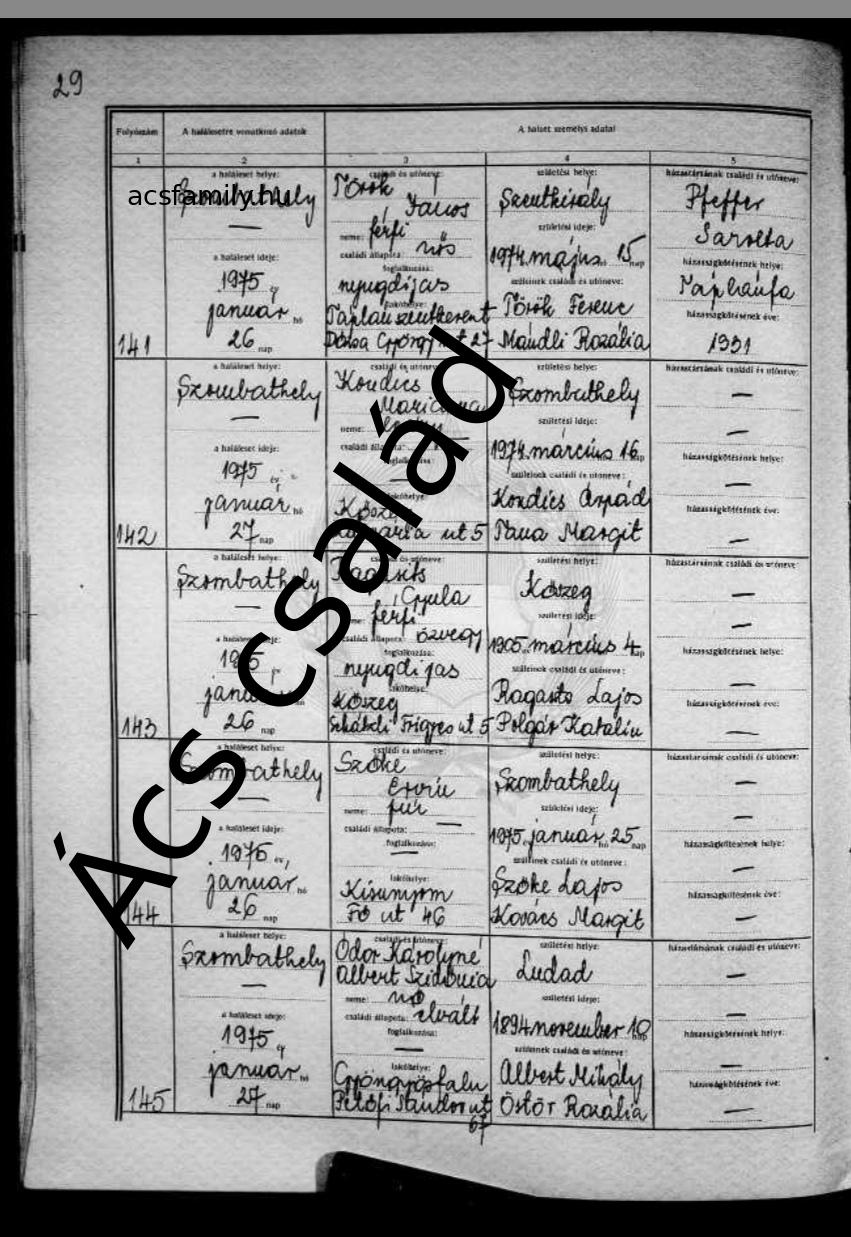 29
Folyószám
A halálesetre vonatkozó adatok
A halott személyi adatai
1
2
3
4
5
a haláleset helye:
Szombathely
—
a haláleset ideje:
1975 év
január hó
26 nap
141
családi és utóneve:
Török
János
neme: férfi
családi állapota: nős
foglalkozása:
nyugdíjas
lakóhelye:
Táplánszentkereszt
Dózsa György út 27
születési helye:
Szentkirály
születési ideje:
1974 május hó 15 nap
szüleinek családi és utóneve:
Török Ferenc
Mándli Rozália
házastársának családi és utóneve:
Pfeffer
Sarolta
házasságkötésének helye:
Táplánfa
házasságkötésének éve:
1931
a haláleset helye:
Szombathely
—
a haláleset ideje:
1975 év
január hó
27 nap
142
családi és utóneve:
Kondics
Marianna
neme:
családi állapota:
foglalkozása:
—
lakóhelye:
Kőszeg
út 5
születési helye:
Szombathely
születési ideje:
1974 március 16 nap
szüleinek családi és utóneve:
Kondics Árpád
Tama Margit
házastársának családi és utóneve:
—
—
házasságkötésének helye:
—
házasságkötésének éve:
—
a haláleset helye:
Szombathely
—
a haláleset ideje:
1975 év
január hó
26 nap
143
családi és utóneve:
Ragasits
Gyula
neme: férfi
családi állapota: özvegy
foglalkozása:
nyugdíjas
lakóhelye:
Kőszeg
Frigyes út 5
születési helye:
Kőszeg
születési ideje:
1905 március 4 nap
szüleinek családi és utóneve:
Lajos
Polgár Katalin
házastársának családi és utóneve:
—
—
házasságkötésének helye:
—
házasságkötésének éve:
—
a haláleset helye:
Szombathely
—
a haláleset ideje:
1975 év
január hó
26 nap
144
családi és utóneve:
Szőke
Ervin
neme: fiú
családi állapota: —
foglalkozása:
—
lakóhelye:
Kisunyom
Fő út 46
születési helye:
Szombathely
születési ideje:
1975 január hó 25 nap
szüleinek családi és utóneve:
Szőke Lajos
Kovács Margit
házastársának családi és utóneve:
—
—
házasságkötésének helye:
—
házasságkötésének éve:
—
a haláleset helye:
Szombathely
—
a haláleset ideje:
1975 év
január hó
27 nap
145
családi és utóneve:
Ódor Károlyné
Albert Szidónia
neme: nő
családi állapota: elvált
foglalkozása:
—
lakóhelye:
Gyöngyösfalu
Petőfi Sándor út
67
születési helye:
Ludad
születési ideje:
1894 november 10 nap
szüleinek családi és utóneve:
Albert Mihály
Östör Rozália
házastársának családi és utóneve:
—
—
házasságkötésének helye:
—
házasságkötésének éve:
—
acsfamily.hu
Ács család